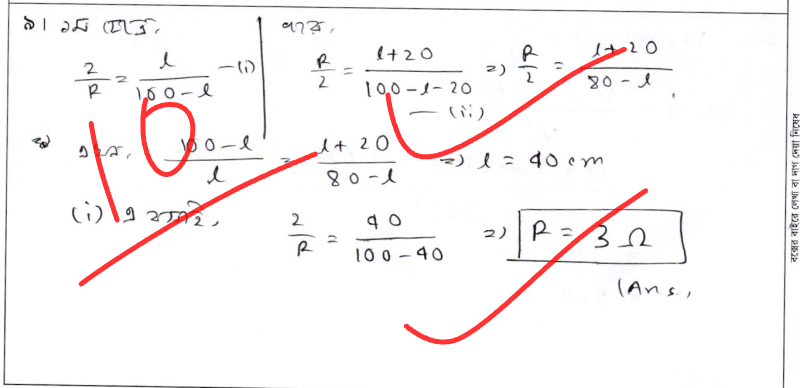 ৯। ১ম ক্ষেত্রে,
2/R = l/(100 - l) —(i)
পরে,
R/2 = (l + 20)/(100 - l - 20) => R/2 = (l + 20)/(80 - l)
— (ii)
10
এখন, (100 - l)/l = (l + 20)/(80 - l) => l = 40 cm
(i) এ বসাই, 2/R = 40/(100 - 40) => R = 3 Ω
(Ans.,
বক্সের বাইরে লেখা বা দাগ দেয়া নিষেধ